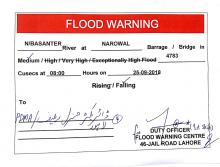 FLOOD WARNING
N/BASANTER River at NAROWAL Barrage / Bridge in
Medium / High / Very High / Exceptionally High Flood 4783
Cusecs at 08:00 Hours on 25-08-2018
Rising / Falling
To
PDMA
DUTY OFFICER
FLOOD WARNING CENTRE
46-JAIL ROAD LAHORE